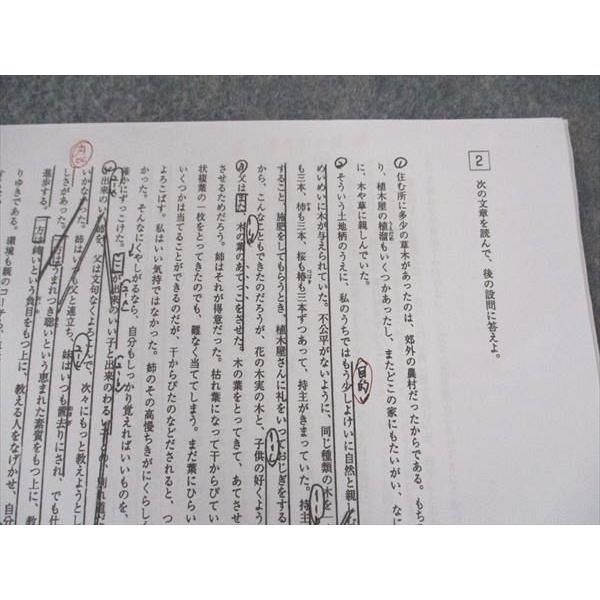 2
次の文章を読んで、後の設問に答えよ。
① 住む所に多少の草木があったのは、郊外の農村だったからである。もち
り、植木屋の植溜もいくつかあったし、またどこの家にもたいがい、なに
に、木や草に親しんでいた。
② そういう土地柄のうえに、私のうちではもう少しよけいに自然と親しむ
目的
めいめいに木が与えられていた。不公平がないように、同じ種類の木を一
も三本、柿も三本、桜も椿も三本ずつあって、持主がきまっていた。持主
すること、施肥をしてもらうとき、植木屋さんに礼をいっておじぎをする
から、こんなこともできたのだろうが、花の木実の木と、子供の好くよう
③ 父はまた、木の葉のあてっこをさせた。木の葉をとってきて、あてさせ
させるためだろう。姉はそれが得意だった。枯れ葉になって干からびてい
状複葉の一枚をとってきたのでも、難なく当ててしまう。まだ葉にひらい
いくつかは当てることができるのだが、干からびたのなどだされると、つ
よろこばす。私はいい気持ではなかった。姉のその高慢ちきがにくらしく
かった。そんなにくやしがるなら、自分もしっかり覚えればいいものを、
確かにずっこけた。ここが出来のいい子と出来のわるい子の、別れ道
出来のいい姉を、父は文句なくよろこんで、次々にもっと教えようとし
いかなかった。姉はいつも父と連立ち、妹はいつも置去りにされ、でも仕
しさがあった。
はうまれつき聡いという恵まれた素質をもつ上に、教
進歩する。一方は鈍いという負目をもつ上に、教える人をなげかせ、自分
りゆきである。環境も親のコーチも、